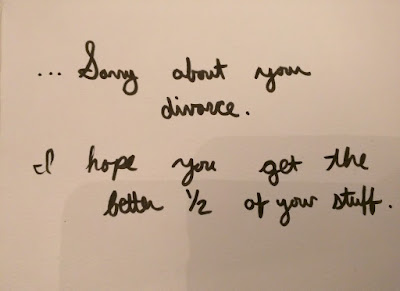 ... Sorry about your
divorce.
I hope you get the
better 1/2 of your stuff.